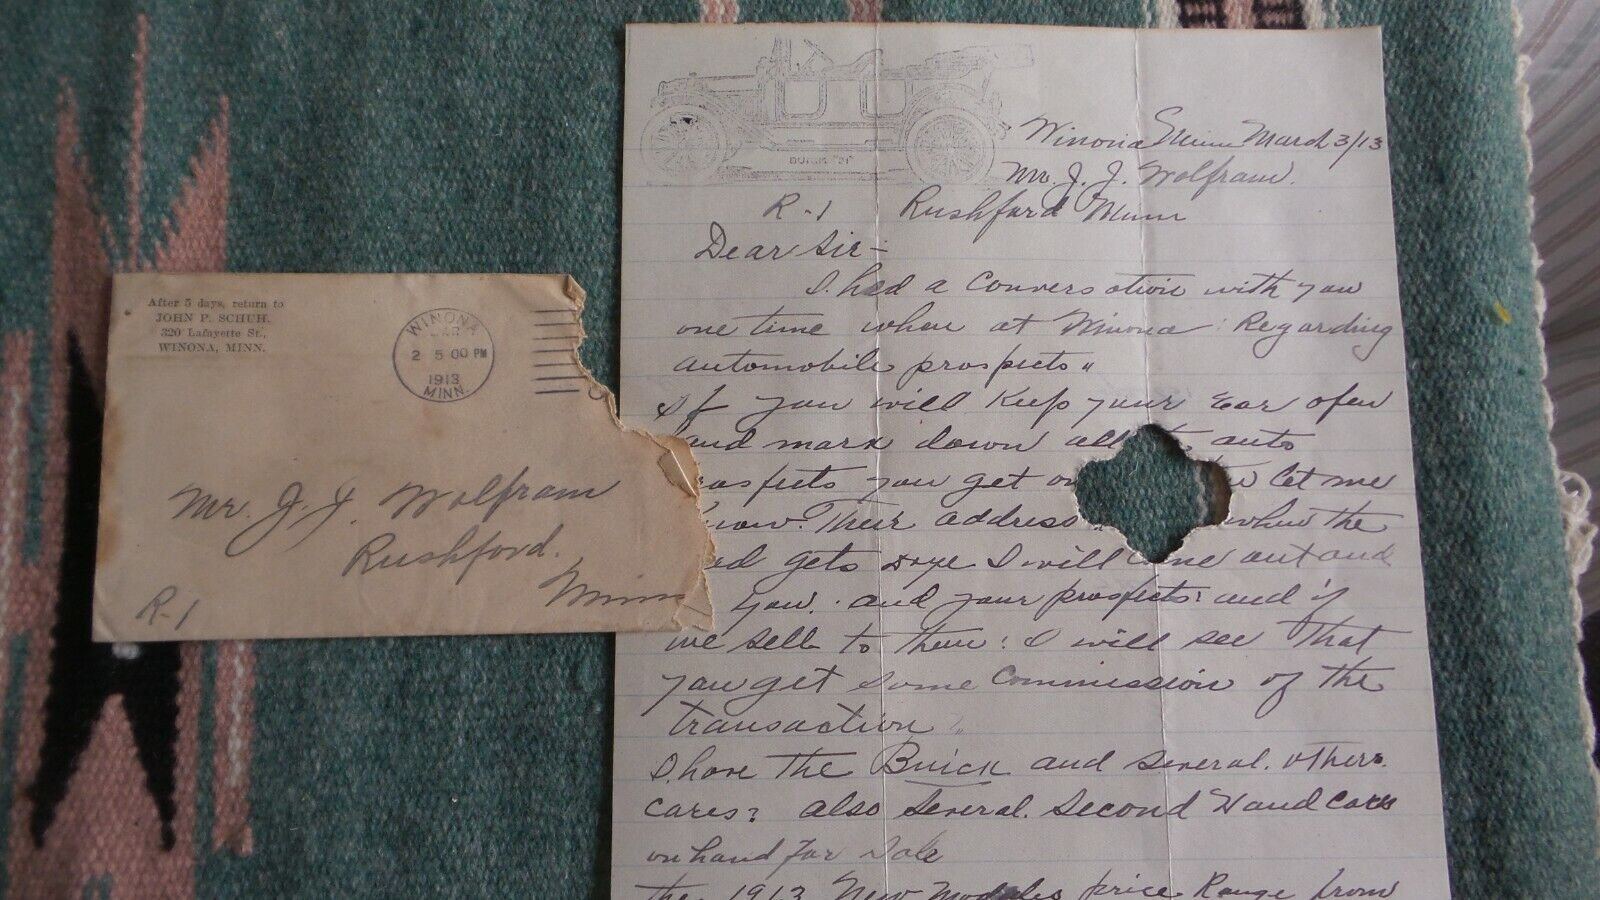 After 5 days, return to
JOHN P. SCHUH.
320 Lafayette St.,
WINONA, MINN.
WINONA
MAR
2 5 00 PM
1913
MINN.
Mr. J. J. Wolfram
Rushford.
Minn
R-1
BUICK
Winona Minn March 3/13
Mr. J. J. Wolfram.
R-1 Rushford Minn
Dear Sir-
I had a Conversation with you
one time when at Winona: Regarding
automobile prospects"
If you will Keep your Ear open
and mark down all auto
you get let me
Their address when the
gets I will come out and
you. and your prospects: and if
we sell to them: I will see That
you get some Commission of the
transaction
I have The Buick and several. others.
cares? also several. Second Hand Cares
on hand for Sale
the 1913 New Modles price Range from